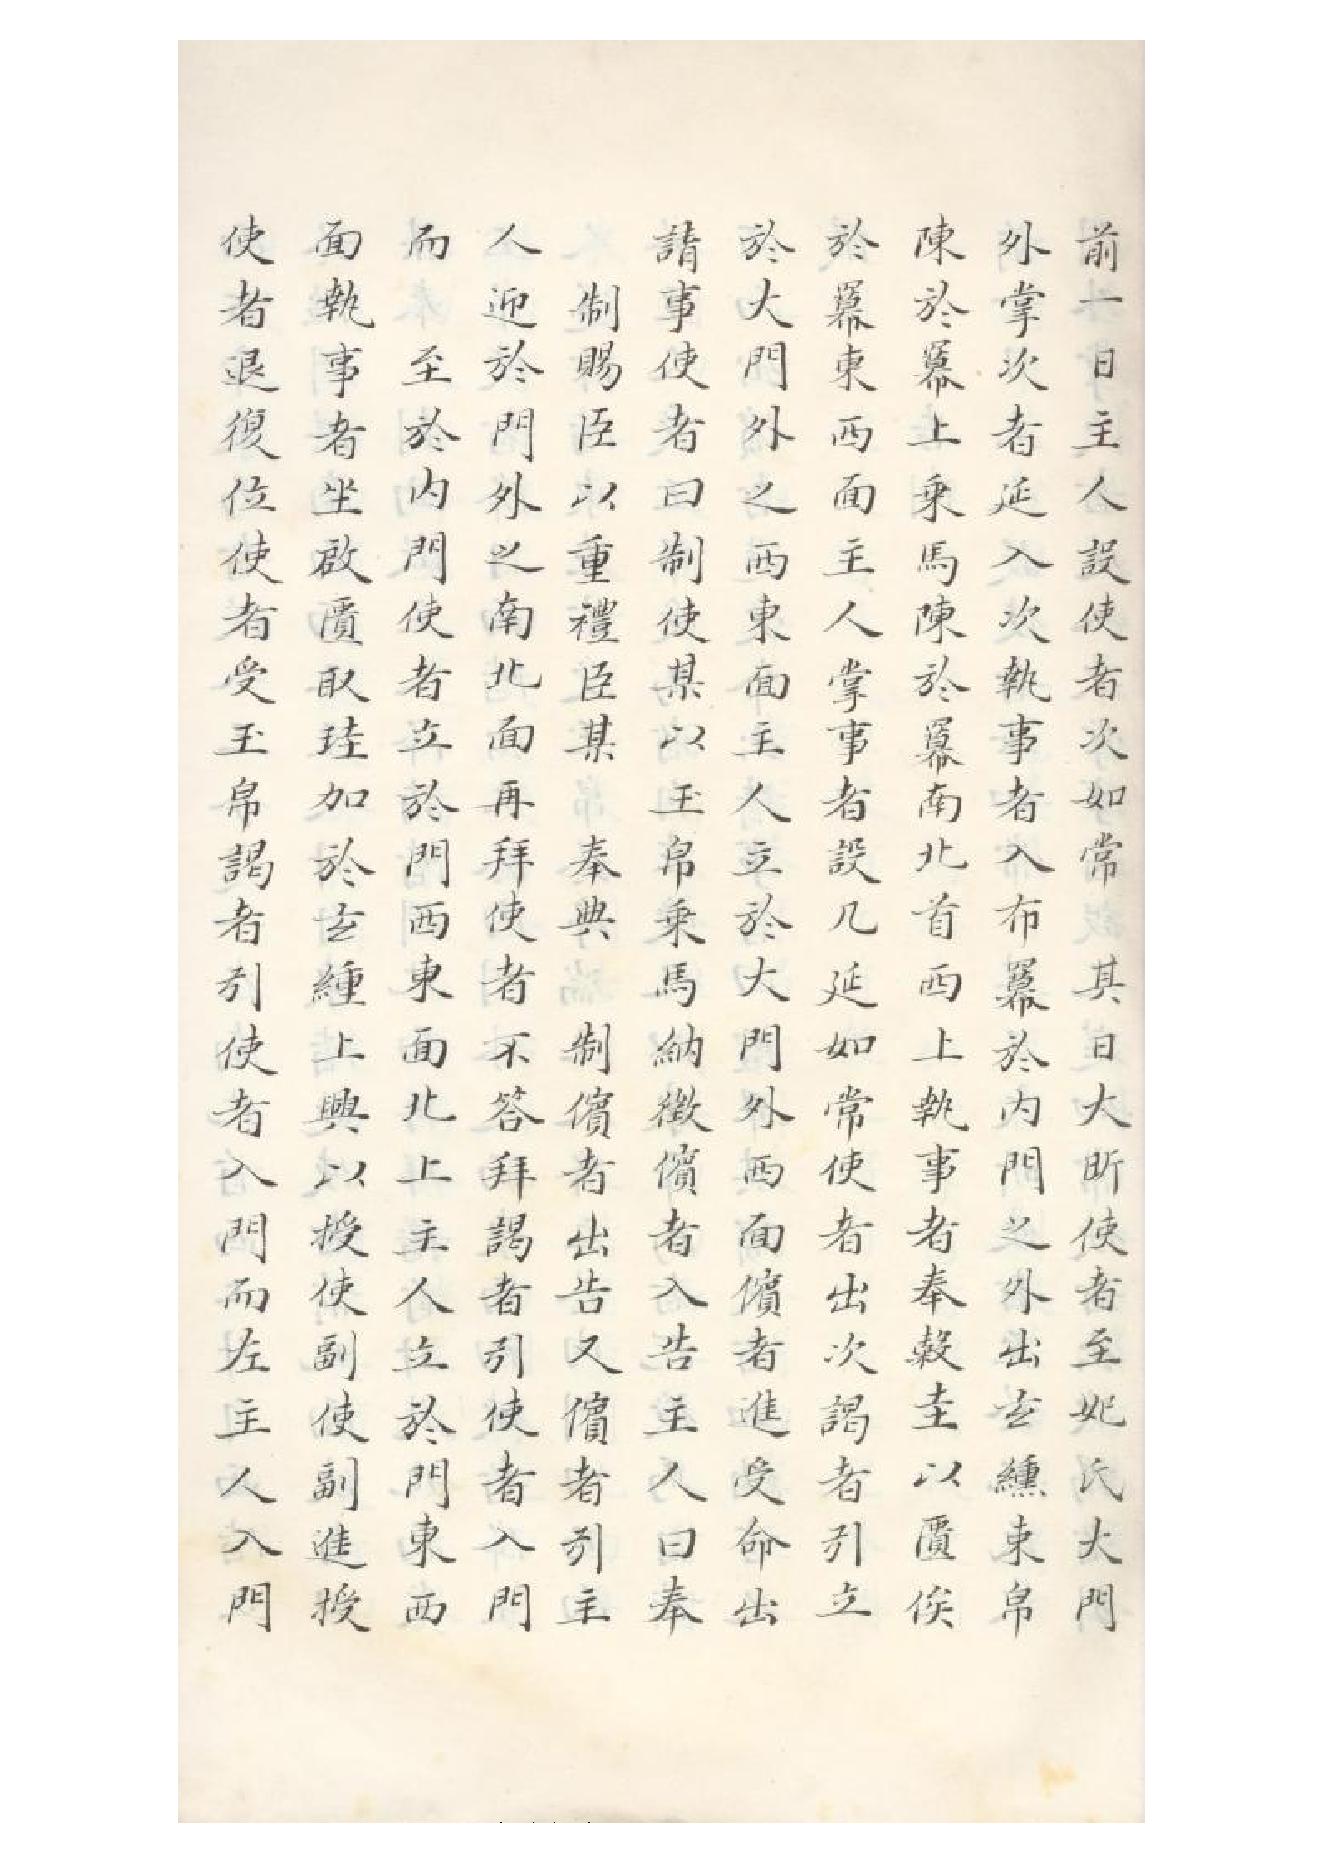 前一日主人設使者次如常其日大昕使者至妃氏大門
外掌次者延入次執事者入布羃於內門之外出玄纁束帛
陳於羃上乘馬陳於羃南北首西上執事者奉穀圭以匱俟
於羃東西面主人掌事者設几延如常使者出次謁者引立
於大門外之西東面主人立於大門外西面儐者進受命出
請事使者曰制使某以玉帛乘馬納徵儐者入告主人曰奉
制賜臣以重禮臣某奉典制儐者出告又儐者引主
人迎於門外之南北面再拜使者不答拜謁者引使者入門
而至於內門使者立於門西東面北上主人立於門東西
面執事者坐啟匱取珪加於玄纁上興以授使副使副進授
使者退復位使者受玉帛謁者引使者入門而左主人入門